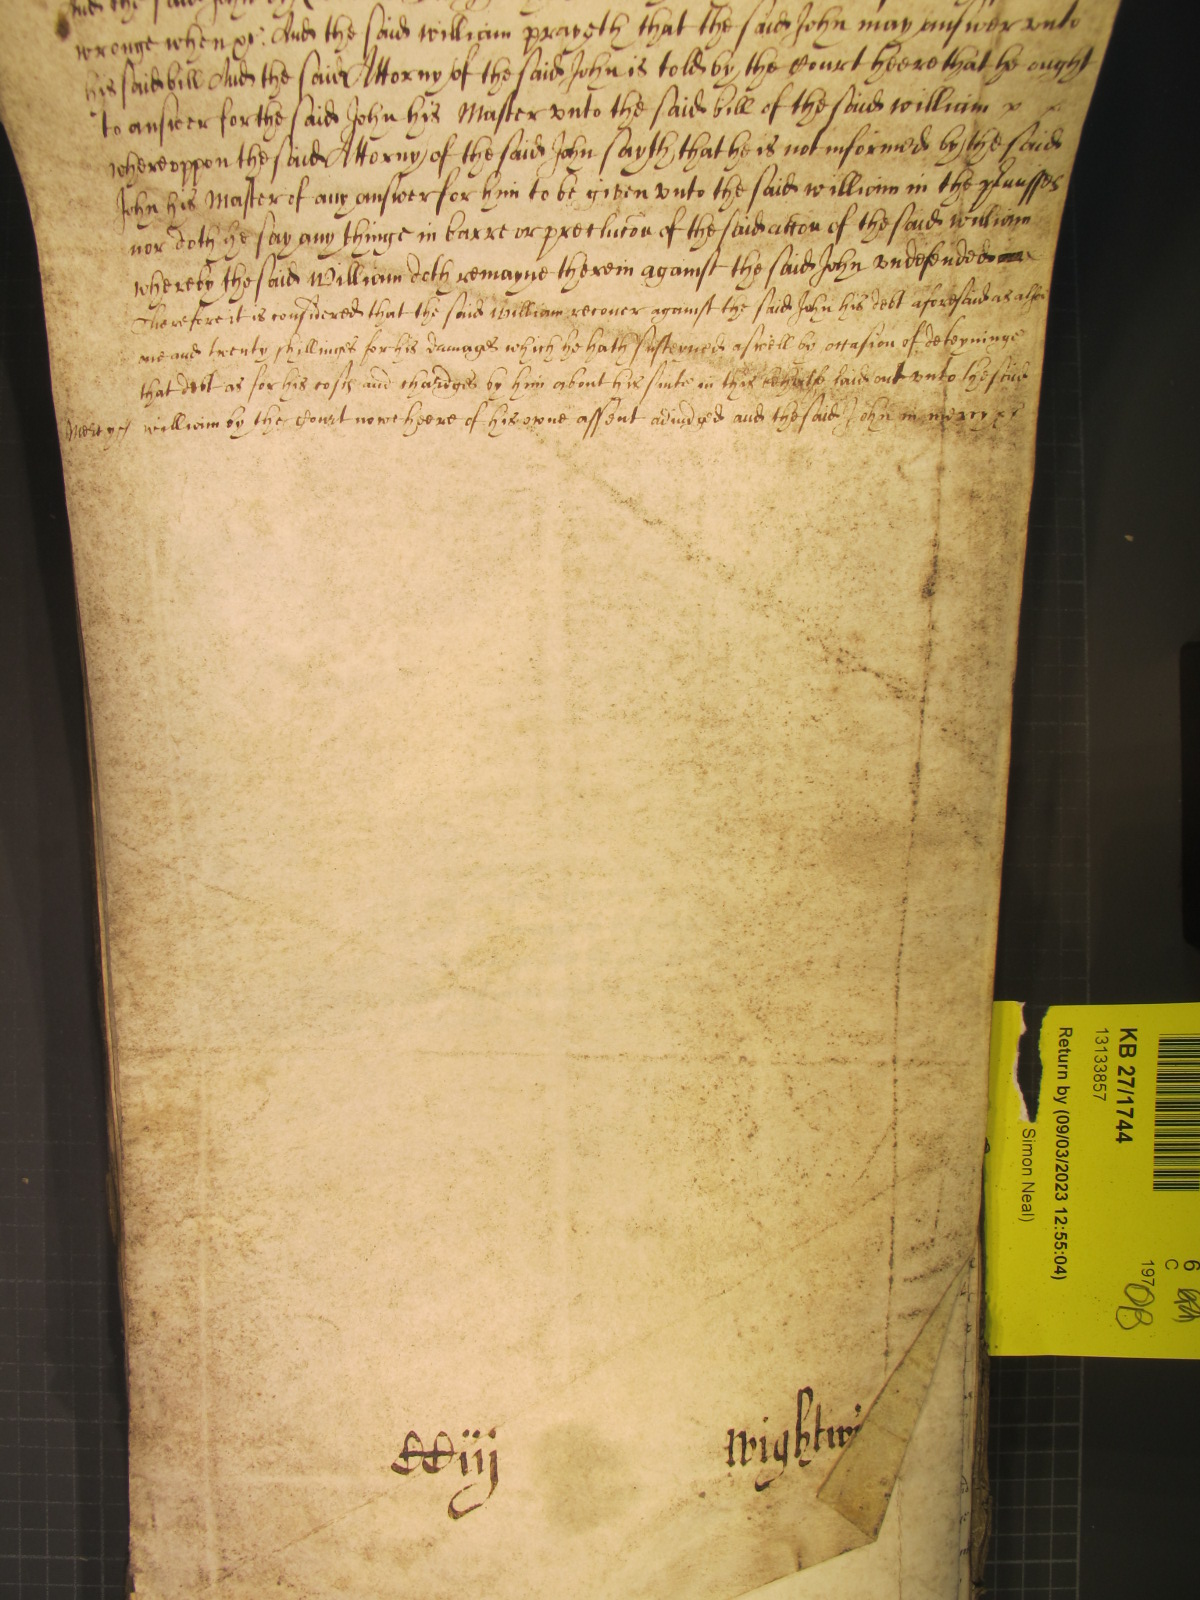 And the said John
wronge when &c. And the said william prayeth that the said John may answer vnto
his said bill And the said Attorny of the said John is told by the Court heere that he ought
to answer for the said John his Master vnto the said bill of the said william
wherevppon the said Attorny of the said John sayth that he is not informed by the said
John his Master of any answer for him to be given vnto the said william in the
nor doth he say any thinge in barre or preclucon of the said accon of the said william
whereby the said William doth remayne therein against the said John vndefended
Therefore it is considered that the said William recover against the said John his debt aforesaid as alsoe
one and twenty shillinges for his damages which he hath susteyned aswell by occasion of deteyninge
that debt as for his costs and chardges by him about his suite in this behalfe laid out vnto the said
Mercy william by the Court nowe heere of his owne assent adiudged and the said John in mercy &c
CCiij
Wightwi
KB 27/1744
13133857
Return by (09/03/2023 12:55:04)
Simon Neal)
6
C
197